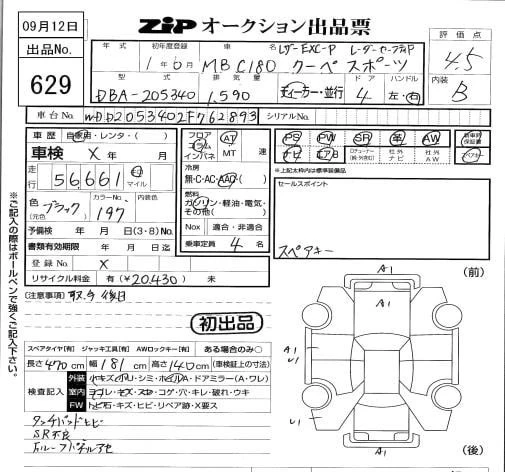 09月12日
出品No.
629
ZIP オークション出品票
評価点
4.5
内装
B
年式 初年度登録 車名
レザーEXC-P レーダーセーフティP
1年6月 MB C180 クーペスポーツ
型式 排気量 ドア ハンドル
DBA-205340 1,590 ディーラー・並行 4 左・右
車台No. WDD2053402F762893 シリアルNo.
車歴 自家用・レンタ・( )
車検 X 年 月
走行 56661 km マイル
色(元色) ブラック カラーNo. 197 内装色
予備検 年 月 日(3・8)No.
書類有効期限 年 月 日迄
登録No. X
リサイクル料金 有(¥20,430) 無
フロア コラム インパネ AT MT 速
冷房 無・C・AC・AAC
燃料 ガソリン・軽油・電気・その他( )
Nox 適合・非適合
乗車定員 4 名
PS PW SR 革 AW 新車時保証書
ナビ エアB 社外ナビ 社外AW
※上記太枠内は標準装備品
セールスポイント
スペアキー
[注意事項] 取々後日
初出品
スペアタイヤ[有] ジャッキ工具[有] AWロックキー[有] ある場合のみ○
長さ 470cm 幅 181cm 高さ 140cm (車検証上の寸法)
検査記入
外装 小キズ・ホリ・シミ・ホイルA・ドアミラー(A・ワレ)
室内 ヨゴレ・キズ・スレ・コゲ・穴・キレ・破れ・ウキ
FW トビ石・キズ・ヒビ・リペア跡・X要ス
タッチパッドヒビ
SR不良
A1
(前)
A1
A1
U1
A1
U1
A1
(後)
※ご記入の際はボールペンで強くご記入下さい。